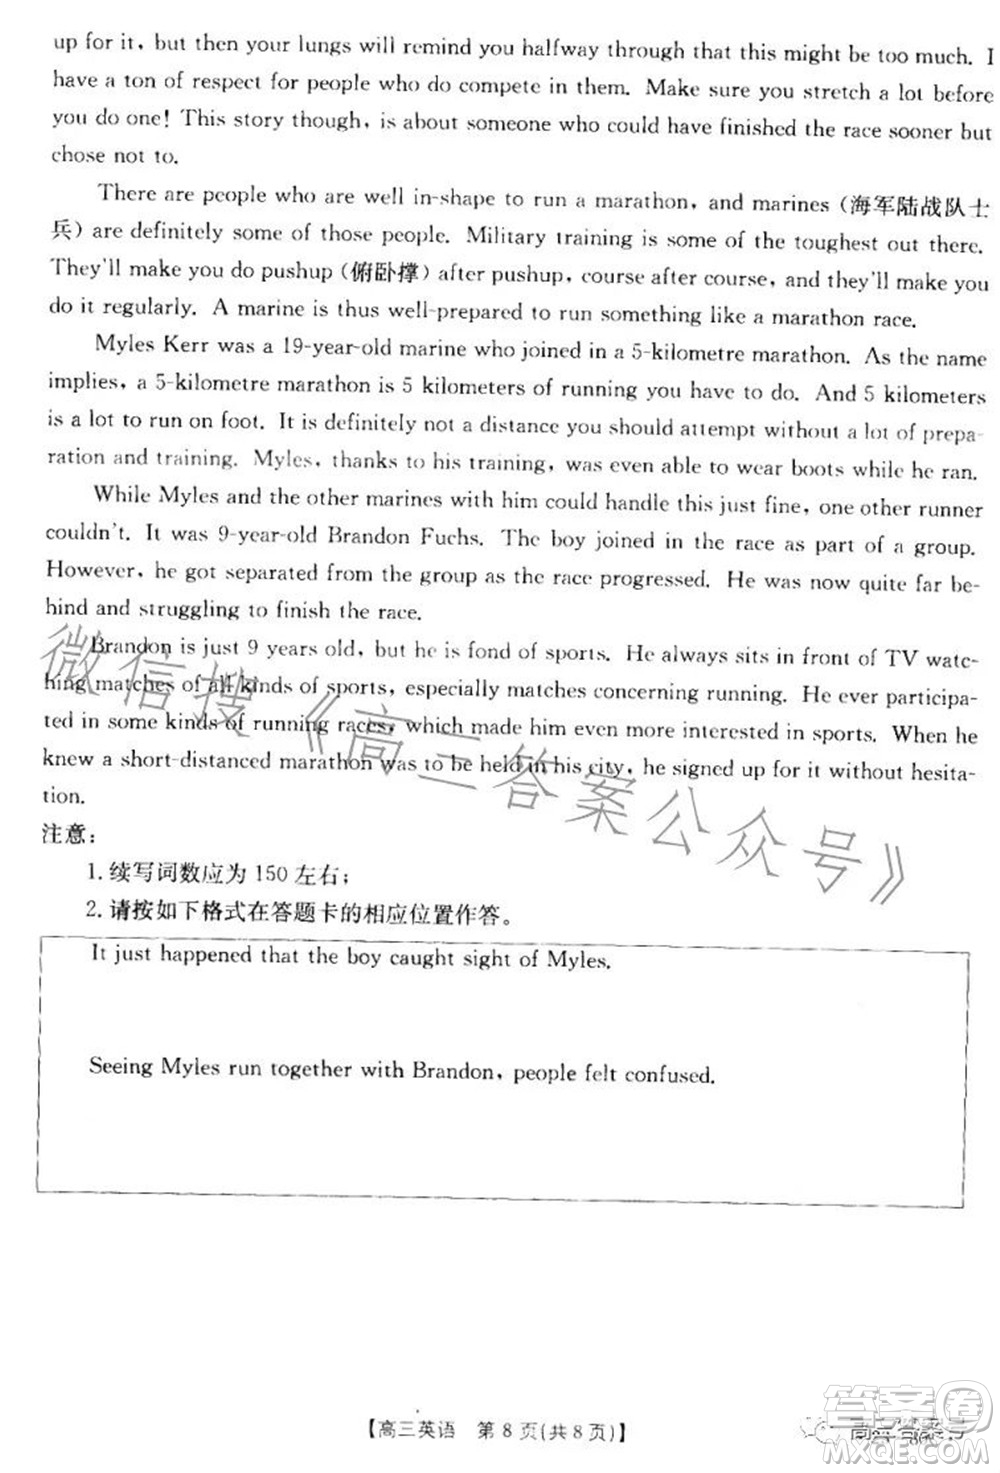 up for it, but then your lungs will remind you halfway through that this might be too much. I
have a ton of respect for people who do compete in them. Make sure you stretch a lot before
you do one! This story though, is about someone who could have finished the race sooner but
chose not to.
There are people who are well in-shape to run a marathon, and marines (海军陆战队士
兵) are definitely some of those people. Military training is some of the toughest out there.
They'll make you do pushup (俯卧撑) after pushup, course after course, and they'll make you
do it regularly. A marine is thus well-prepared to run something like a marathon race.
Myles Kerr was a 19-year-old marine who joined in a 5-kilometre marathon. As the name
implies, a 5-kilometre marathon is 5 kilometers of running you have to do. And 5 kilometers
is a lot to run on foot. It is definitely not a distance you should attempt without a lot of prepa-
ration and training. Myles, thanks to his training, was even able to wear boots while he ran.
While Myles and the other marines with him could handle this just fine, one other runner
couldn't. It was 9-year-old Brandon Fuchs. The boy joined in the race as part of a group.
However, he got separated from the group as the race progressed. He was now quite far be-
hind and struggling to finish the race.
Brandon is just 9 years old, but he is fond of sports. He always sits in front of TV watc-
hing matches of all kinds of sports, especially matches concerning running. He ever participa-
ted in some kinds of running races, which made him even more interested in sports. When he
knew a short-distanced marathon was to be held in his city, he signed up for it without hesita-
tion.
微信搜《高三答案公众号》
注意:
1. 续写词数应为 150 左右;
2. 请按如下格式在答题卡的相应位置作答。
It just happened that the boy caught sight of Myles.
Seeing Myles run together with Brandon, people felt confused.
【高三英语 第 8 页(共 8 页)】
答案圈
MXQE.COM